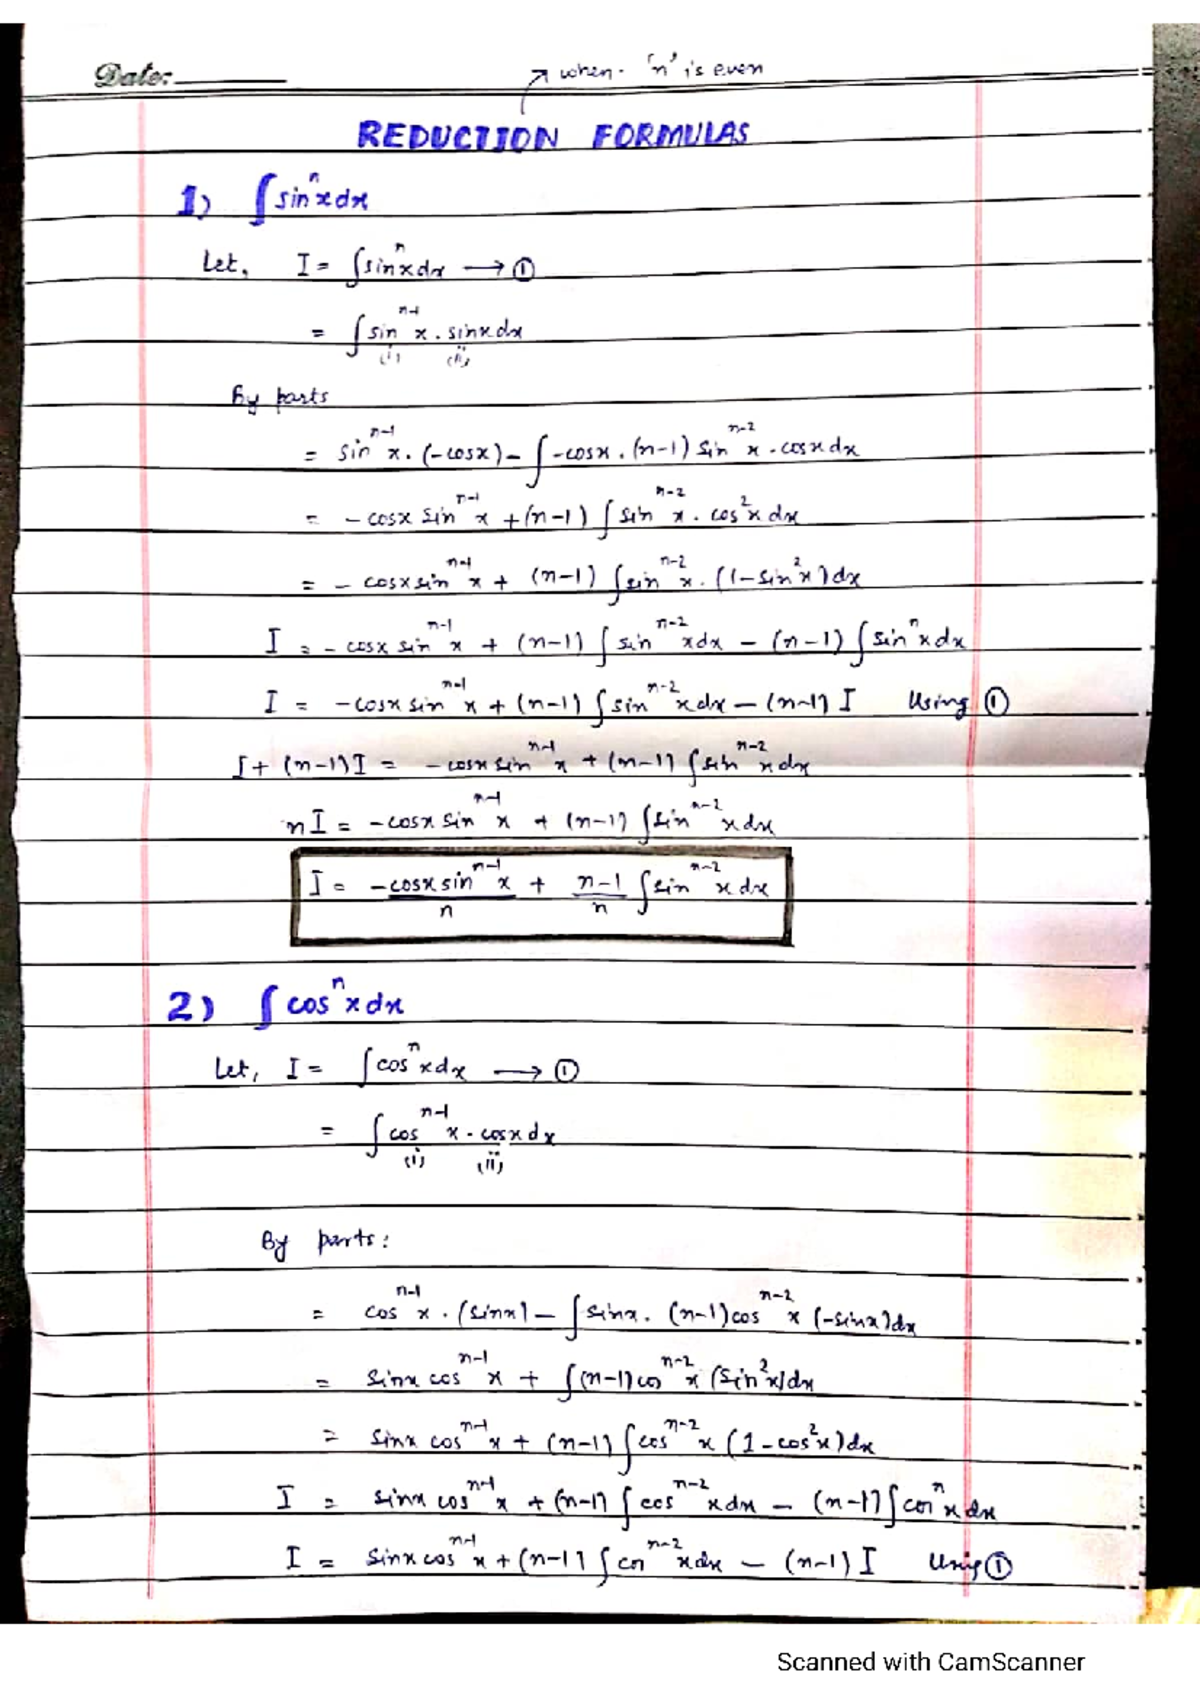 Date:
↗ when. 'n' is even
REDUCTION FORMULAS
1) ∫sinⁿxdx
Let, I = ∫sinⁿxdx ⟶ ①
= ∫sinⁿ⁻¹x . sinxdx
(i) (ii)
By parts
= sinⁿ⁻¹x. (-cosx) - ∫-cosx . (n-1) sinⁿ⁻²x . cosxdx
= -cosx sinⁿ⁻¹x + (n-1) ∫sinⁿ⁻²x . cos²xdx
= - cosxsinⁿ⁻¹x + (n-1) ∫sinⁿ⁻²x . (1-sin²x)dx
I = - cosx sinⁿ⁻¹x + (n-1) ∫sinⁿ⁻²xdx - (n-1) ∫sinⁿxdx
I = -cosx sinⁿ⁻¹x + (n-1) ∫sinⁿ⁻²xdx - (n-1) I Using ①
I + (n-1)I = -cosx sinⁿ⁻¹x + (n-1) ∫sinⁿ⁻²xdx
nI = -cosx sinⁿ⁻¹x + (n-1) ∫sinⁿ⁻²xdx
I = -cosxsinⁿ⁻¹x/n + n-1/n ∫sinⁿ⁻²xdx
2) ∫cosⁿxdx
Let, I = ∫cosⁿxdx ⟶ ①
= ∫cosⁿ⁻¹x . cosxdx
(i) (ii)
By parts:
= cosⁿ⁻¹x . (sinx) - ∫sinx. (n-1)cosⁿ⁻²x (-sinx)dx
= sinx cosⁿ⁻¹x + ∫(n-1)cosⁿ⁻²x (sin²x)dx
= sinx cosⁿ⁻¹x + (n-1) ∫cosⁿ⁻²x (1-cos²x)dx
I = sinx cosⁿ⁻¹x + (n-1) ∫cosⁿ⁻²xdx - (n-1) ∫cosⁿxdx
I = sinx cosⁿ⁻¹x + (n-1) ∫cosⁿ⁻²xdx - (n-1) I Using ①
Scanned with CamScanner